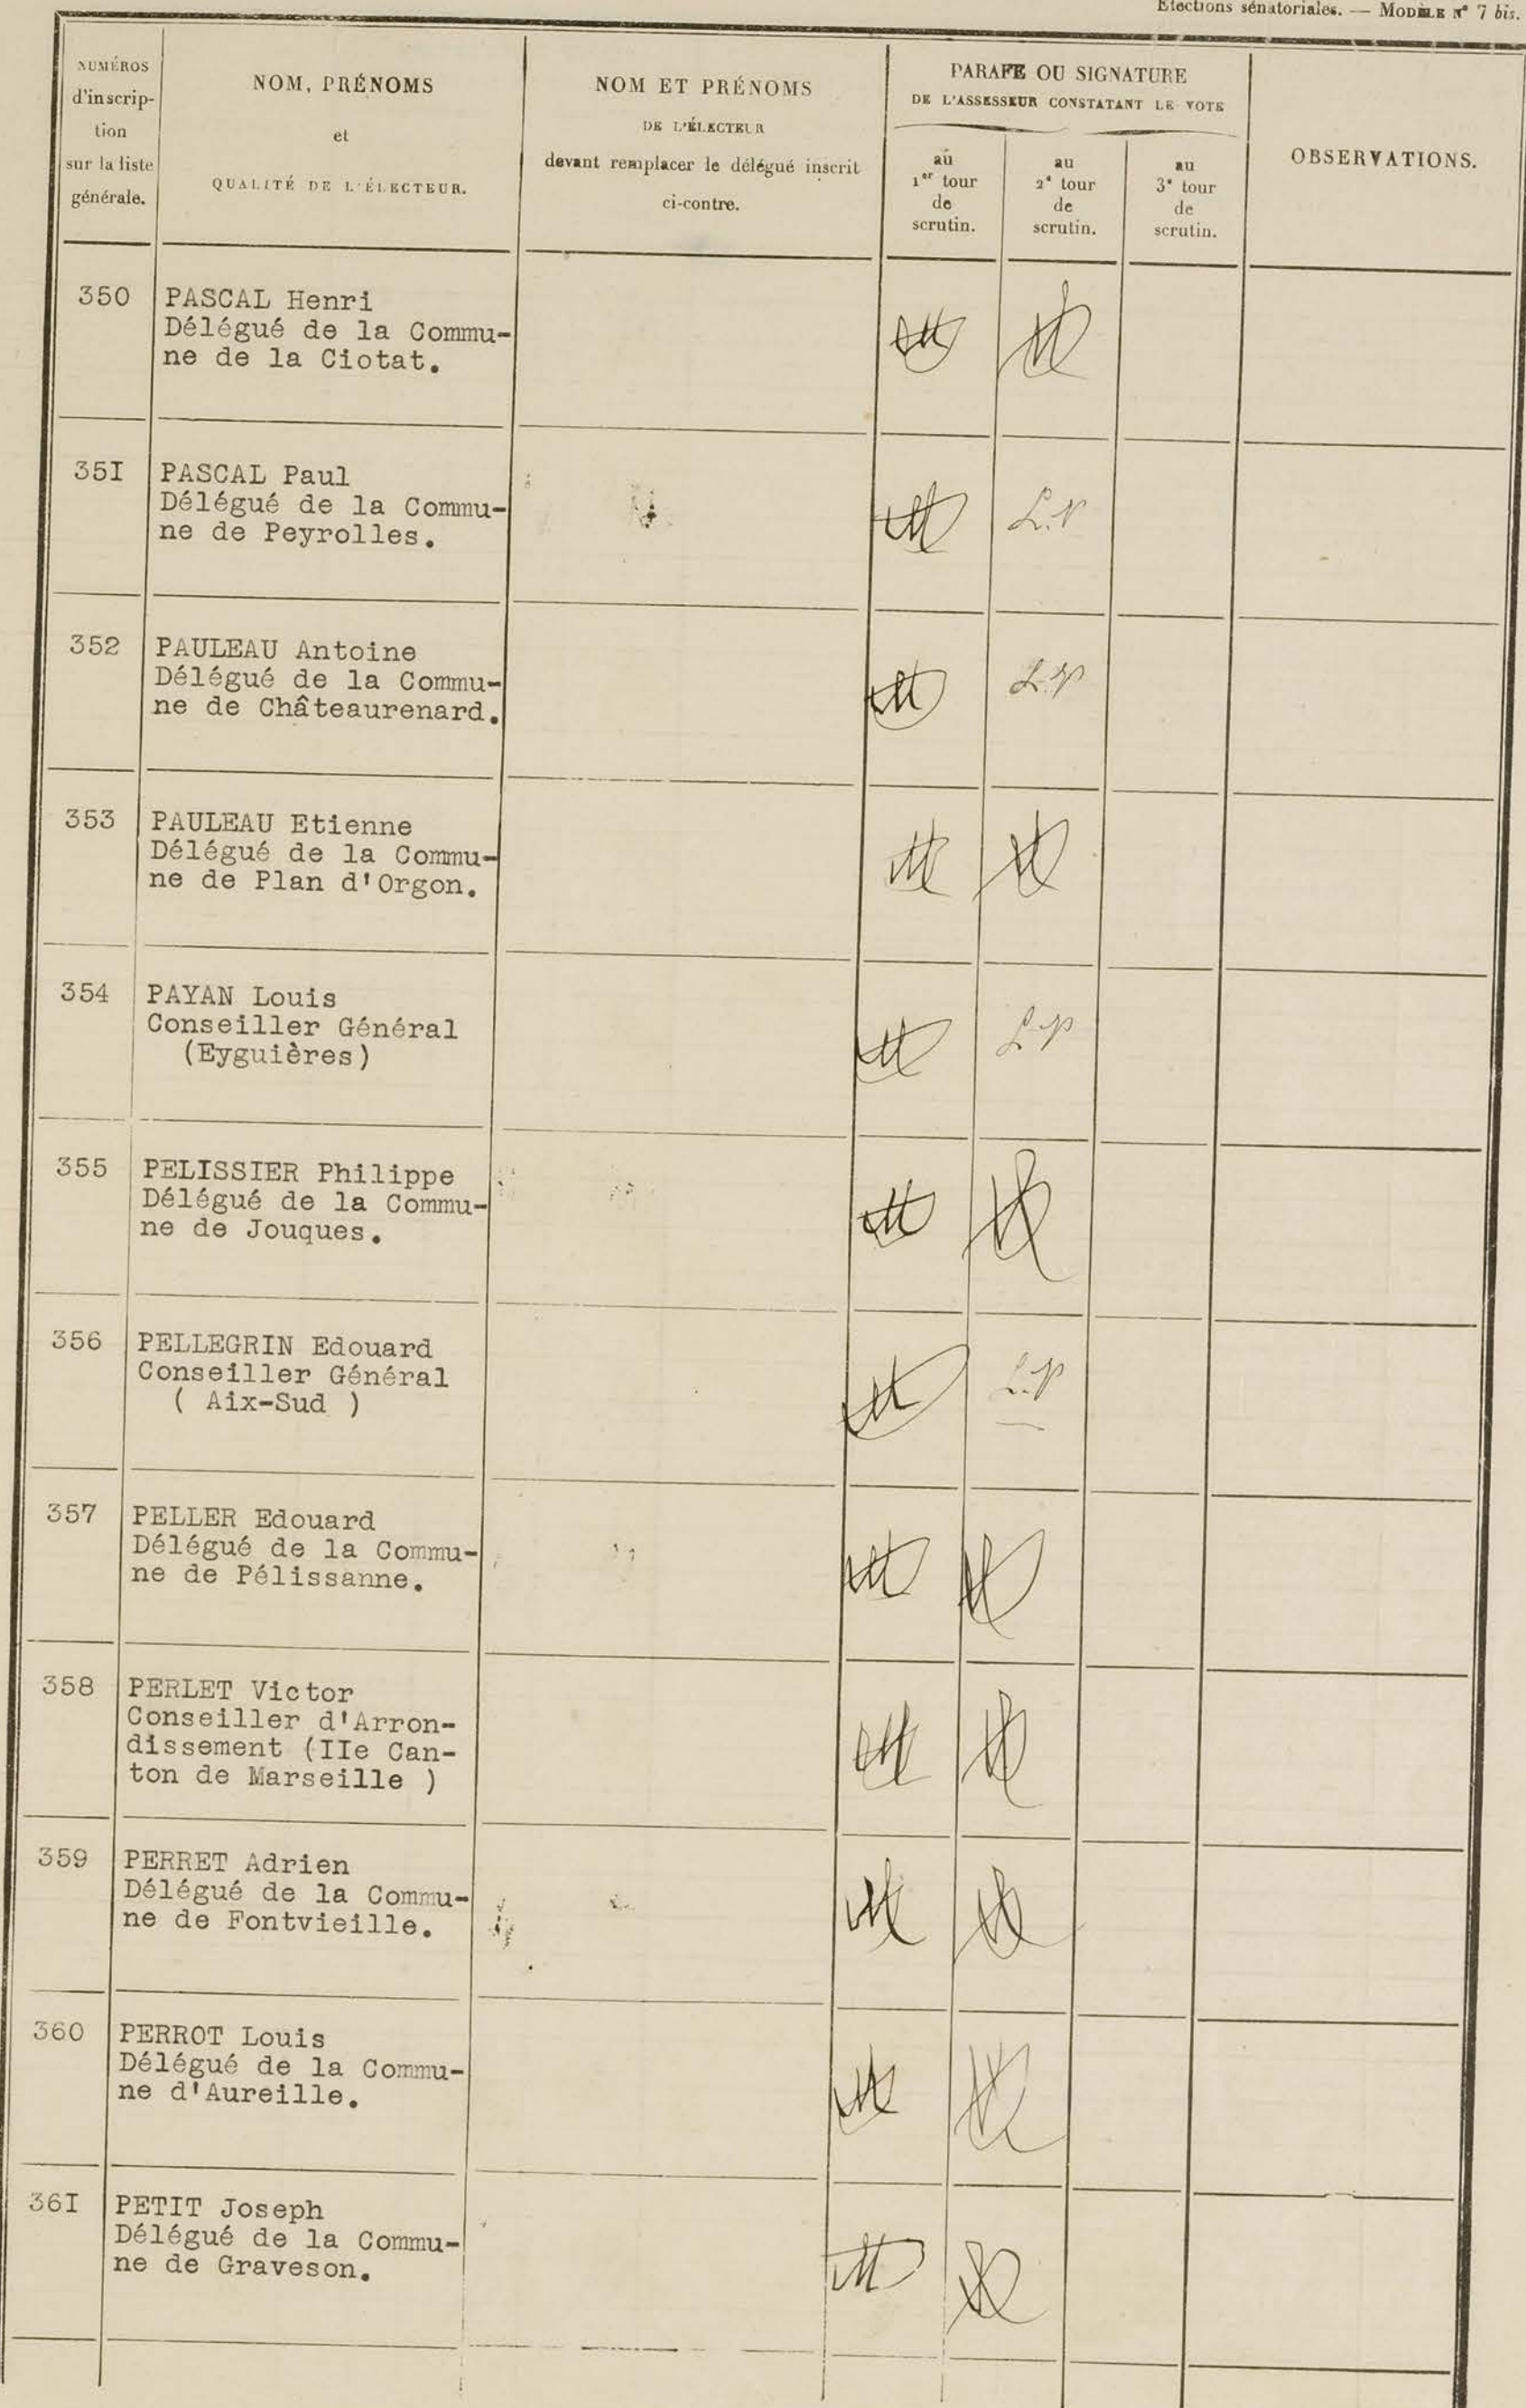 Elections sénatoriales. — MODÈLE N° 7 bis.
NUMÉROS
d'inscrip-
tion
sur la liste
générale.
NOM, PRÉNOMS
et
QUALITÉ DE L'ÉLECTEUR.
NOM ET PRÉNOMS
DE L'ÉLECTEUR
devant remplacer le délégué inscrit
ci-contre.
PARAFE OU SIGNATURE
DE L'ASSESSEUR CONSTATANT LE VOTE
au
1er tour
de
scrutin.
au
2e tour
de
scrutin.
au
3e tour
de
scrutin.
OBSERVATIONS.
350 PASCAL Henri
Délégué de la Commu-
ne de la Ciotat.
35I PASCAL Paul
Délégué de la Commu-
ne de Peyrolles.
352 PAULEAU Antoine
Délégué de la Commu-
ne de Châteaurenard.
353 PAULEAU Etienne
Délégué de la Commu-
ne de Plan d'Orgon.
354 PAYAN Louis
Conseiller Général
(Eyguières)
355 PELISSIER Philippe
Délégué de la Commu-
ne de Jouques.
356 PELLEGRIN Edouard
Conseiller Général
( Aix-Sud )
357 PELLER Edouard
Délégué de la Commu-
ne de Pélissanne.
358 PERLET Victor
Conseiller d'Arron-
dissement (IIe Can-
ton de Marseille )
359 PERRET Adrien
Délégué de la Commu-
ne de Fontvieille.
360 PERROT Louis
Délégué de la Commu-
ne d'Aureille.
36I PETIT Joseph
Délégué de la Commu-
ne de Graveson.